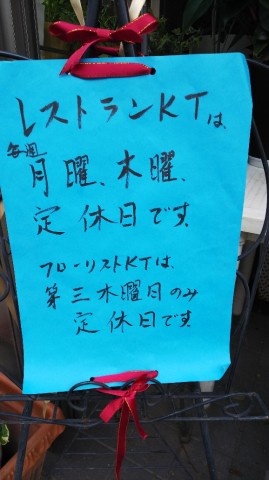 レストランKTは、
毎週
月曜、木曜、
定休日です
フローリストKTは、
第三木曜日のみ
定休日です